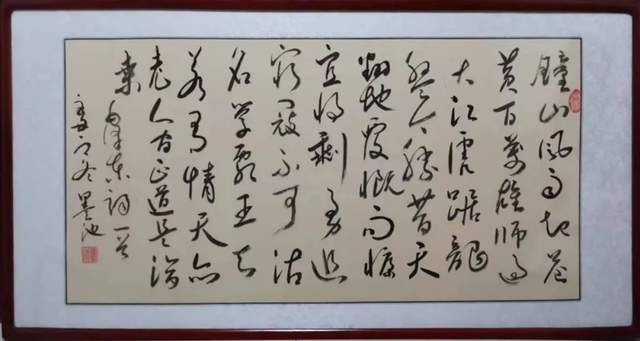 鐘山风雨起苍
黄百萬雄师过
大江虎踞龍
盤今胜昔天
翻地覆慨而慷
宜将剩勇追
穷寇不可沽
名学霸王天
若有情天亦
老人间正道是沧
桑 毛泽东词一首
冬墨池